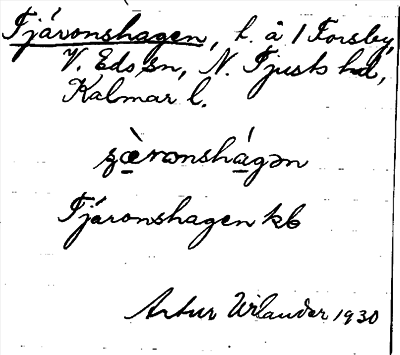 Tjäronshagen, t. å 1 Forsby,
V. Eds sn, N. Tjusts hd,
Kalmar l.
Tjäronshagen kb
Artur Uirlander 1930